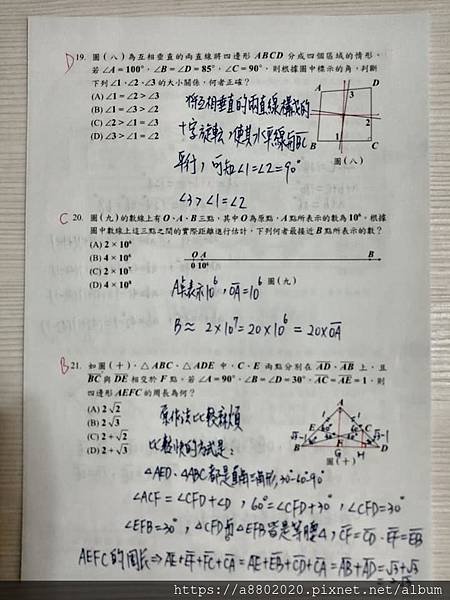 D 19. 圖(八)為互相垂直的兩直線將四邊形 ABCD 分成四個區域的情形,
若∠A=100°,∠B=∠D=85°,∠C=90°,則根據圖中標示的角,判斷
下列∠1、∠2、∠3的大小關係,何者正確?
(A) ∠1=∠2>∠3
(B) ∠1=∠3>∠2
(C) ∠2>∠1=∠3
(D) ∠3>∠1=∠2
將互相垂直的兩直線構成的
十字旋轉,使其水平線與BC
平行,可知∠1=∠2=90°
∠3>∠1=∠2
A
D
3
2
1
B
C
圖(八)
C 20. 圖(九)的數線上有O、A、B三點,其中O為原點,A點所表示的數為10⁶。根據
圖中數線上這三點之間的實際距離進行估計,下列何者最接近B點所表示的數?
(A) 2×10⁶
(B) 4×10⁶
(C) 2×10⁷
(D) 4×10⁸
O A B
0 10⁶
圖(九)
A點表示10⁶,OA=10⁶
B≈2×10⁷=20×10⁶=20×OA
B 21. 如圖(十),△ABC、△ADE中,C、E兩點分別在AD、AB上,且
BC與DE相交於F點。若∠A=90°,∠B=∠D=30°,AC=AE=1,則
四邊形AEFC的周長為何?
(A) 2√2
(B) 2√3
(C) 2+√2
(D) 2+√3
原作法比較麻煩
比較快的方式是:
A
1
1
√3-1
√3-1
E
C
F
B
G
H
D
圖(十)
△AED、△ABC都是直角三角形,30-60-90°
∠ACF=∠CFD+∠D,60°=∠CFD+30°,∠CFD=30°
∠EFB=30°,△CFD與△EFB皆是等腰△,CF=CD、EF=EB
AEFC的周長⇒AE+EF+FC+CA=AE+EB+CD+CA=AB+AD=√3+√3
=2√3
https://a8802020.pixnet.net/album